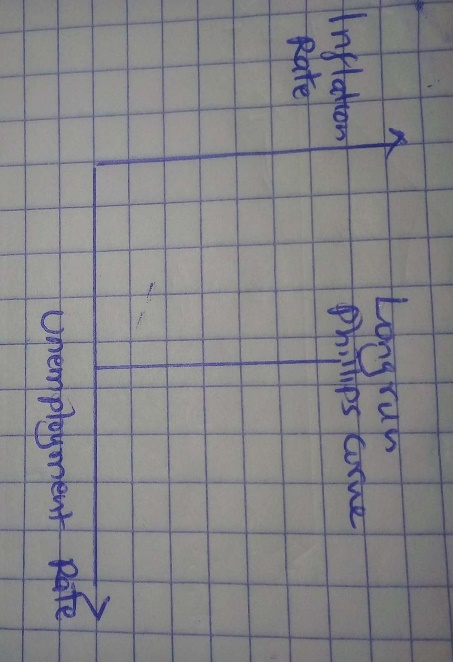 Inflation
Rate
Long run
Phillips Curve
Unemployment Rate